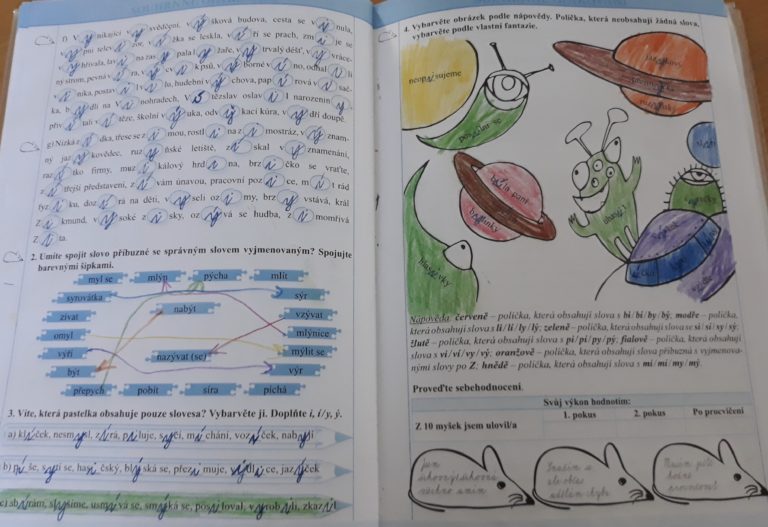 f) V y nikající v y svědčení, v ý šková budova, cesta se v i nula,
pní telev i zor, v ý žka se leskla, v í ří se prach, zm i je se
vyhřívala, lav i na zas y pala l y žaře, v y trvalý déšť, v y vráce-
ný strom, pevná v í ra, v y
no, odhal i li
v i nika, postav i l v i lu, hudební v ý chova, pap í rová v í sač-
ka, b y dlí na V i nohradech, V í tězslav oslav i l narozenin y,
přiv í tali v í těze, školní v ý uka, odv y kací kúra, v y dří doupě.
g) Nízká z í dka, třese se z i mou, rostl i na z i mostráz, v ý znam-
ný jaz y kovědec, ruz y ňské letiště, z í skal v y znamenání,
raz í tko firmy, muz i kálový hrd i na, brz i čko se vraťte,
z í třejší představení, z í vám únavou, pracovní poz i ce, m í t rád
fyz i ku, doz í rá na děti, v y seli oz i my, brz y vstává, král
Z i kmund, v y soké z i sky, oz ý vá se hudba, z i momřivá
Z i ta.
2. Umíte spojit slovo příbuzné se správným slovem vyjmenovaným? Spojujte
barevnými šipkami.
myl se mlýn pýcha mlít
syrovátka sýr
nabýt
zívat vzývat
omyl mlýnice
mýlit se
výří nazývat (se)
být výr
přepych pobít síra píchá
3. Víte, která pastelka obsahuje pouze slovesa? Vybarvěte ji. Doplňte i, í/y, ý.
a) klíček, nesmysl, zírá, piluje, syčí, míchání, vozíček, nabyli
b) píše, sytí se, hasičský, blýská se, přezimuje, vydlice, jazýček
c) sbírám, slyšíme, usmívá se, smýká se, posiloval, vyrobili, zkazil
4. Vybarvěte obrázek podle nápovědy. Políčka, která neobsahují žádná slova,
vybarvěte podle vlastní fantazie.
neopisujeme
posilnit se
bílá paní
bylinky
Nápověda: červeně – políčka, která obsahují slova s bi/bí/by/bý; modře – políčka,
která obsahují slova s li/lí/ly/lý; zeleně – políčka, která obsahují slova se si/sí/sy/sý;
žlutě – políčka, která obsahují slova s pi/pí/py/pý; fialově – políčka, která obsahují
slova s vi/ví/vy/vý; oranžově – políčka, která obsahují slova příbuzná s vyjmenova-
nými slovy po Z; hnědě – políčka, která obsahují slova s mi/mí/my/mý.
Proveďte sebehodnocení.
Svůj výkon hodnotím:
Z 10 myšek jsem ulovil/a 1. pokus 2. pokus Po procvičení
jsem
šikovný/šikovná
všechno umím
Snažím se
ale občas
udělám chybu
Musím ještě
hodně
procvičovat